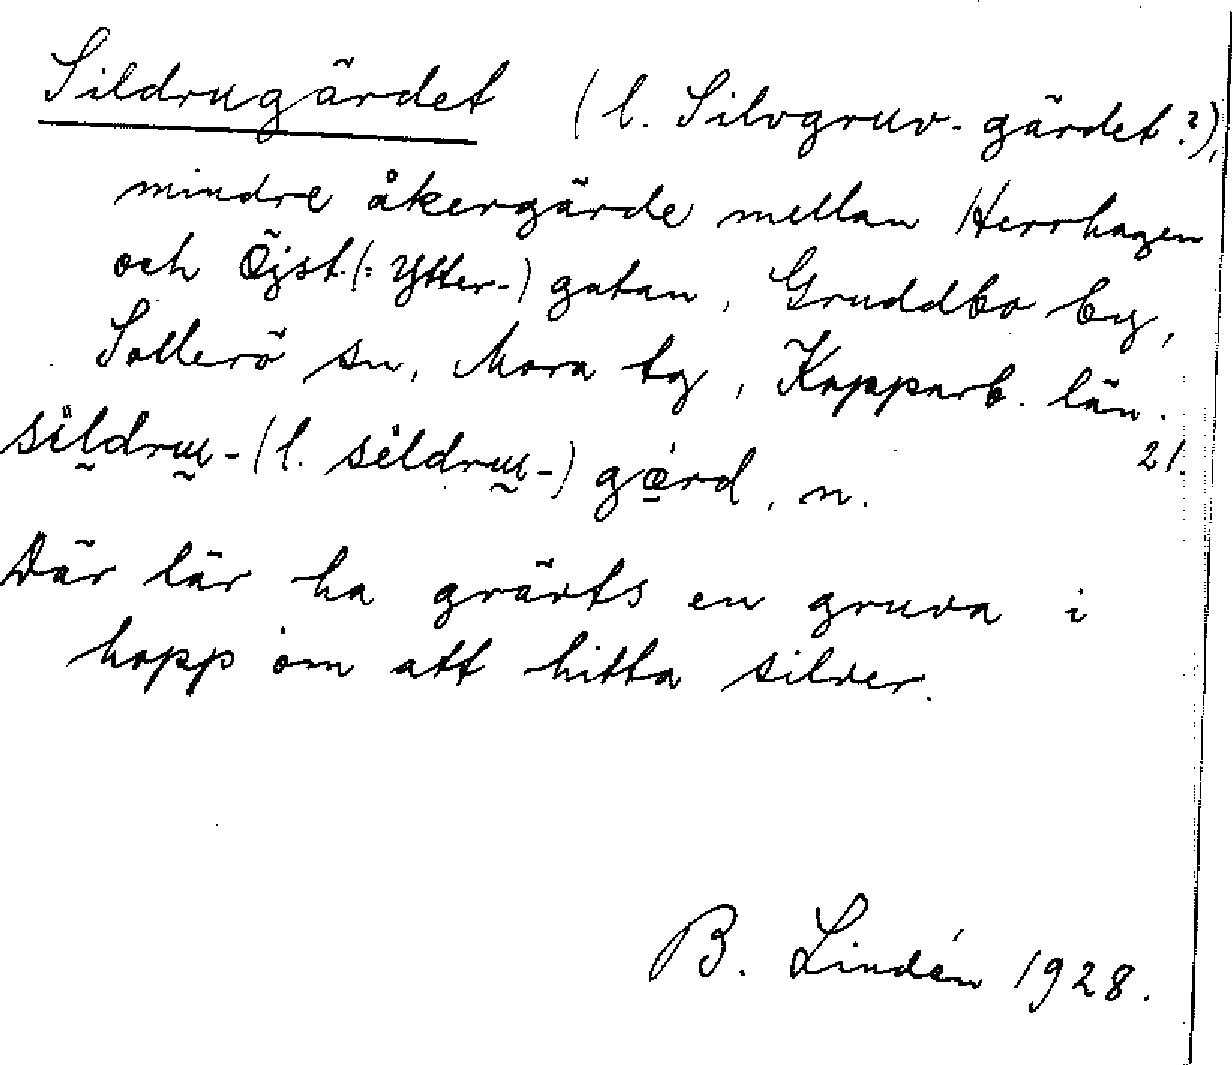 Sildrugärdet (l. Silvgruv-gärdet?),
mindre åkergärde mellan Herrhagen
och Öjst.(: Ytter-) gatan, Gruddbo by,
Sollerö sn, Mora tg, Kopparb. län.
sildrɯ- (l. sildrɯ-) gærd, n. 21.
Där lär ha grävts en gruva i
hopp om att hitta silver.
B. Lindén 1928.